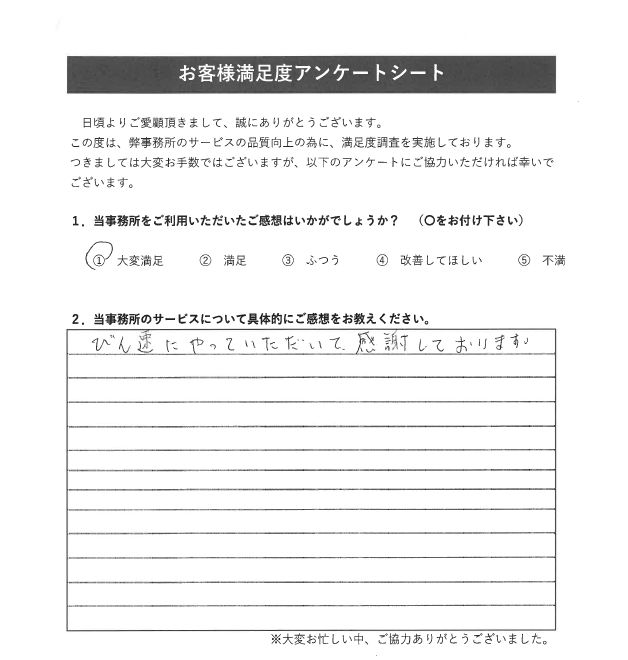 お客様満足度アンケートシート
日頃よりご愛顧頂きまして、誠にありがとうございます。
この度は、弊事務所のサービスの品質向上の為に、満足度調査を実施しております。
つきましては大変お手数ではございますが、以下のアンケートにご協力いただければ幸いで
ございます。
1．当事務所をご利用いただいたご感想はいかがでしょうか？ （〇をお付け下さい）
① 大変満足 ② 満足 ③ ふつう ④ 改善してほしい ⑤ 不満
2．当事務所のサービスについて具体的にご感想をお教えください。
びん速にやっていただいて、感謝しております。
※大変お忙しい中、ご協力ありがとうございました。